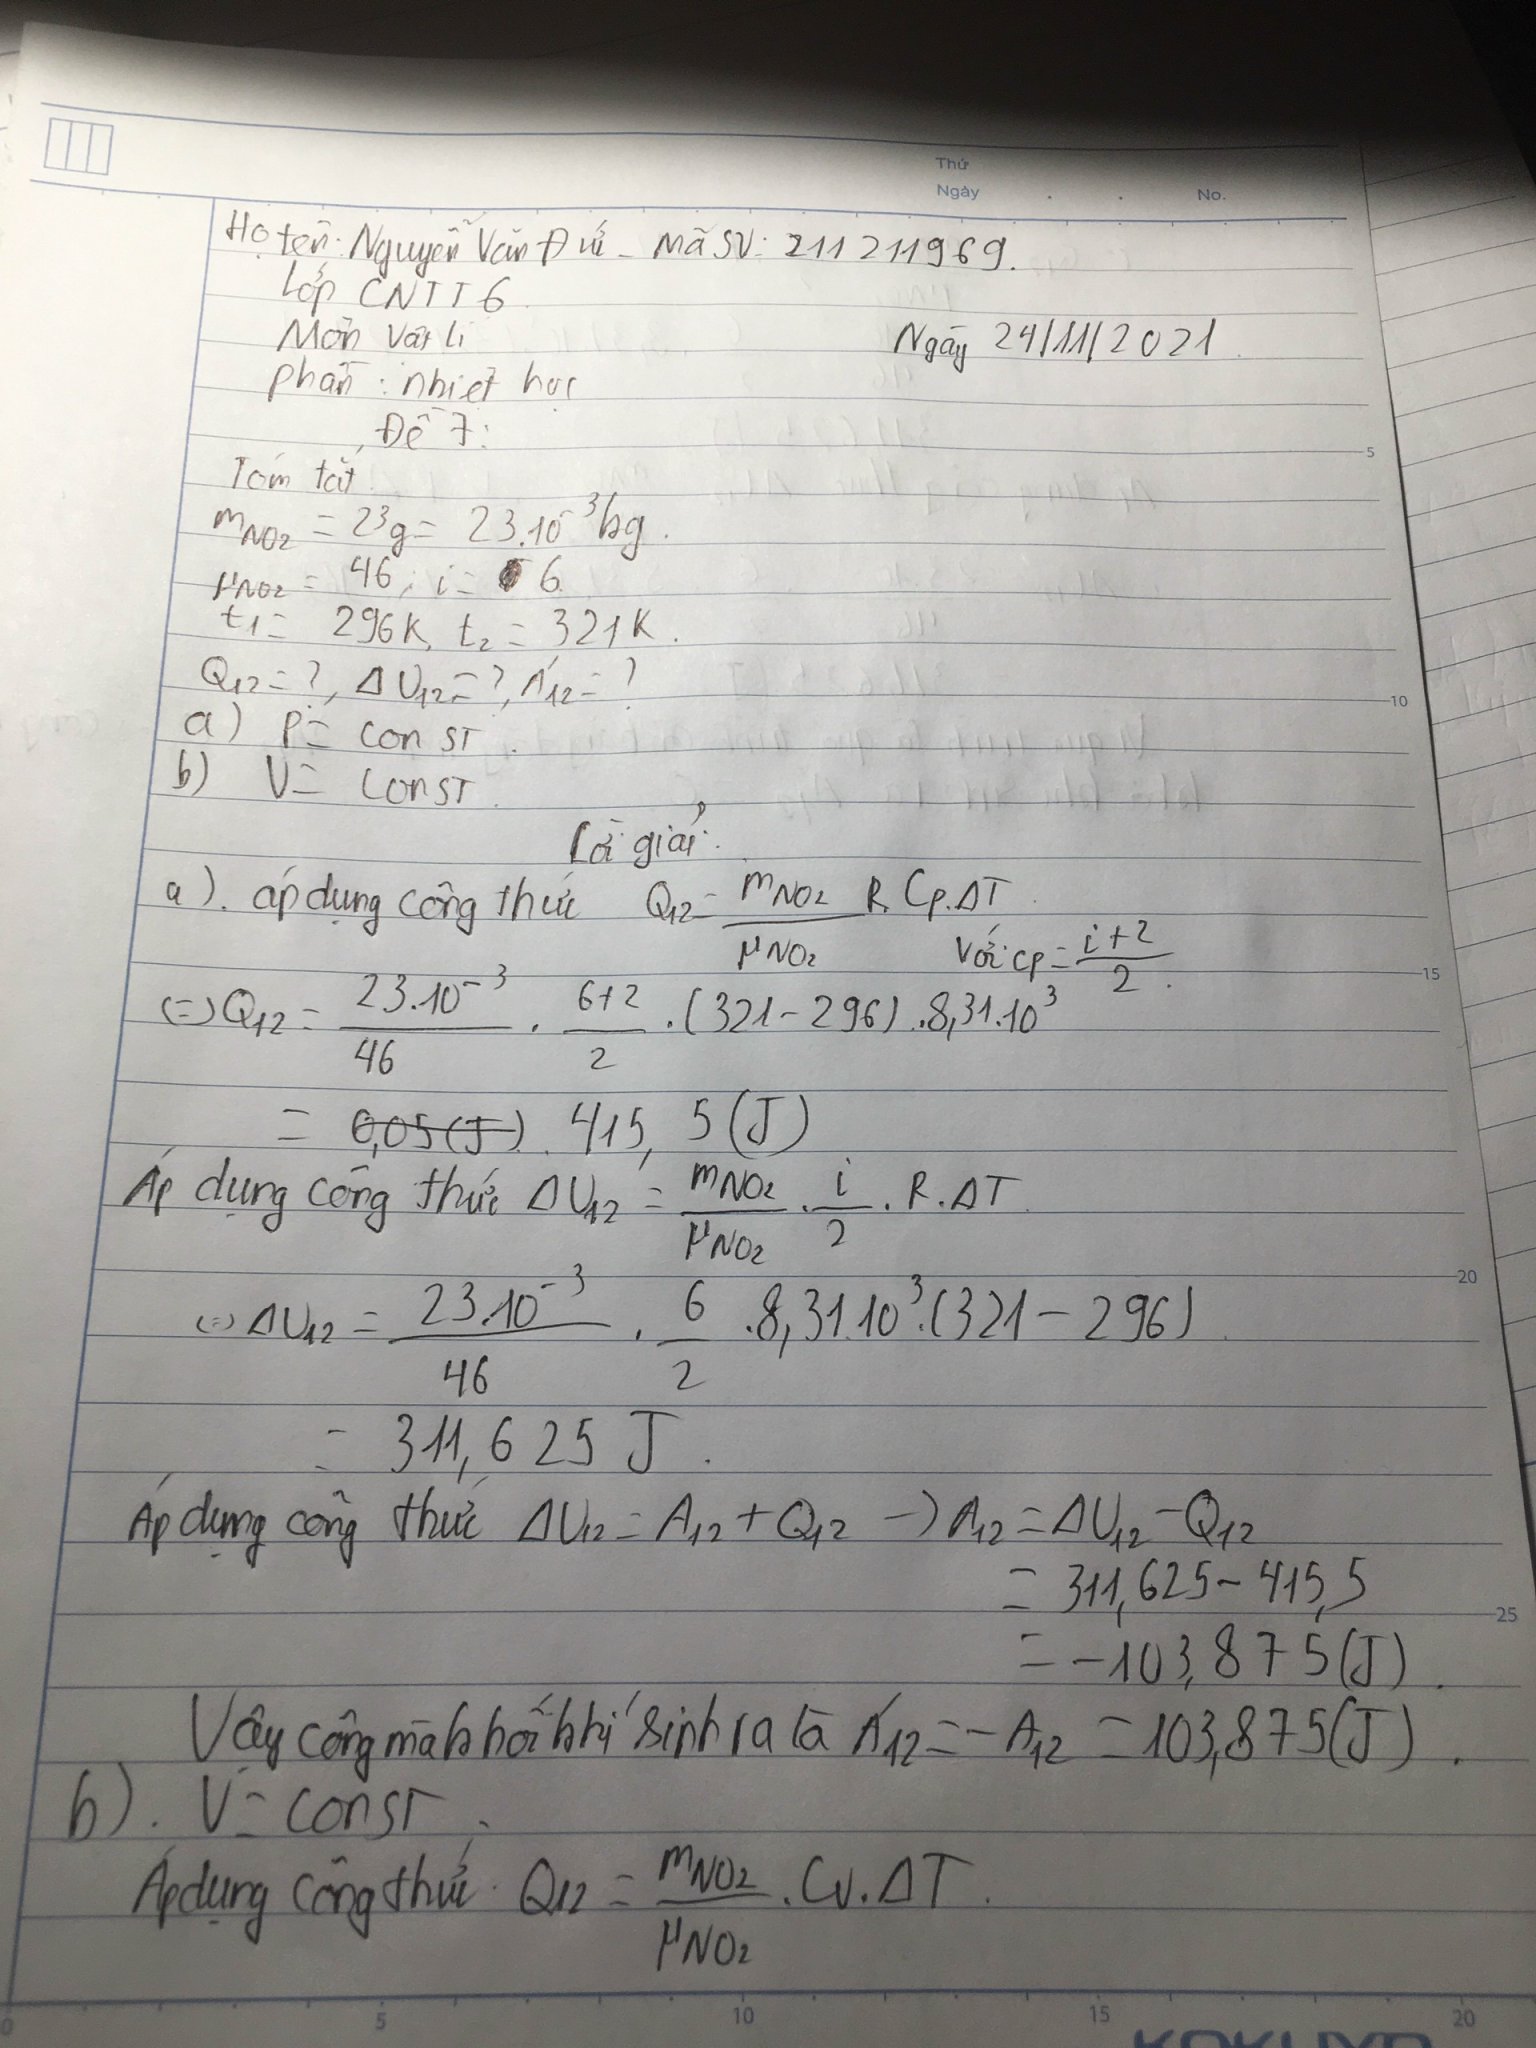 Thứ
Ngày . . No.
Họ tên: Nguyễn Văn Đức - Mã SV: 211211969.
Lớp CNTT6
Môn Vật lí
Ngày 24/11/2021
phần: nhiệt học
Đề 7:
Tóm tắt
m_NO₂ = 23g = 23.10⁻³kg.
μ_NO₂ = 46; i = 6
t₁ = 296K, t₂ = 321K.
Q₁₂=?, ΔU₁₂=?, A'₁₂=?
a) P = const.
b) V = const.
Lời giải:
a). áp dụng công thức Q₁₂ = m_NO₂/μ_NO₂ R. Cp.ΔT
Với cp = (i+2)/2.
(=) Q₁₂ = 23.10⁻³/46 . (6+2)/2 . (321-296).8,31.10³
= 0,05(J). 415,5(J)
Áp dụng công thức ΔU₁₂ = m_NO₂/μ_NO₂ . i/2 . R.ΔT.
(=) ΔU₁₂ = 23.10⁻³/46 . 6/2 .8,31.10³.(321-296)
= 311,625 J.
Áp dụng công thức ΔU₁₂ = A₁₂ + Q₁₂ → A₁₂ = ΔU₁₂ - Q₁₂
= 311,625 - 415,5
= -103,875(J).
Vậy công mà khối khí sinh ra là A'₁₂ = -A₁₂ = 103,875(J).
b). V = const.
Áp dụng công thức Q₁₂ = m_NO₂/μ_NO₂ . Cv.ΔT.
5
10
15
20
25
0 5 10 15 20
KOKUYO